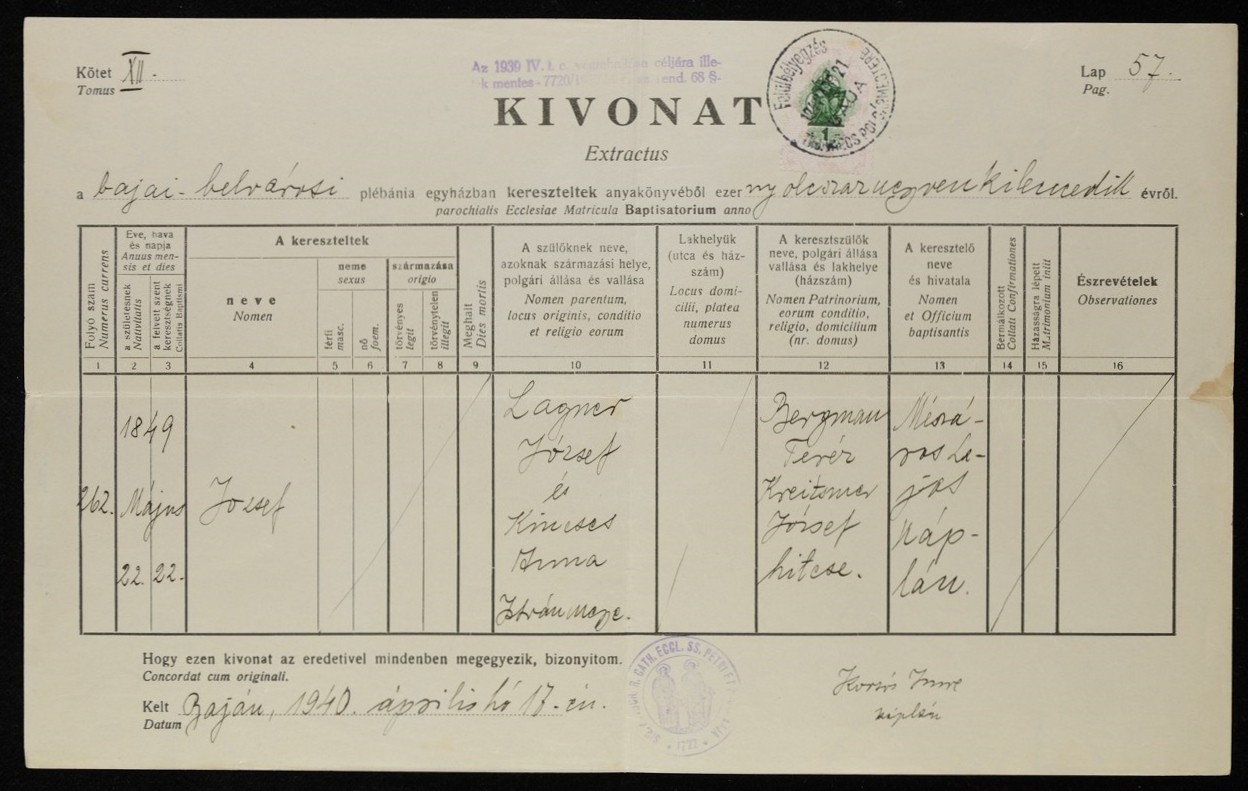 Kötet XII.
Tomus
Az 1939 IV. t. c. végrehajtása céljára ille-
k mentes - 7720/ end. 68 §-
Lap 57.
Pag.
KIVONAT
Extractus
a bajai-belvárosi plébánia egyházban kereszteltek anyakönyvéből ezer nyolcszáznegyvenkilencedik évről.
parochialis Ecclesiae Matricula Baptisatorium anno
Folyó szám
Numerus currens
Eve, hava
és napja
Anuus men-
sis et dies
a születésnek
Nativitatis
a felvett szent
keresztségnek
Collatis Baptismi
A kereszteltek
neve
Nomen
neme
sexus
férfi
masc.
nő
foem.
származása
origio
törvényes
legit
törvénytelen
illegit
Meghalt
Dies mortis
A szülőknek neve,
azoknak származási helye,
polgári állása és vallása
Nomen parentum,
locus originis, conditio
et religio eorum
Lakhelyük
(utca és ház-
szám)
Locus domi-
cilii, platea
numerus
domus
A keresztszülők
neve, polgári állása
vallása és lakhelye
(házszám)
Nomen Patrinorium,
eorum conditio,
religio, domicilium
(nr. domus)
A keresztelő
neve
és hivatala
Nomen
et Officium
baptisantis
Bermálkozott
Collati Confirmationes
Házasságra lépett
Matrimonium iniit
Észrevételek
Observationes
1 2 3 4 5 6 7 8 9 10 11 12 13 14 15 16
262.
1849
Május
22. 22.
József
Lagner
József
és
Kincses
Anna
Bergman
Teréz
Kreitsmer
József
hitese.
Mészá-
ros La-
jos
káp-
lán.
Hogy ezen kivonat az eredetivel mindenben megegyezik, bizonyitom.
Concordat cum originali.
Kelt Baján, 1940. április hó 17-én.
Datum
R. CATH. ECCL. SS. PETRI ET
1727
Imre
káplán
Felülbélyegzés
BAJA
1